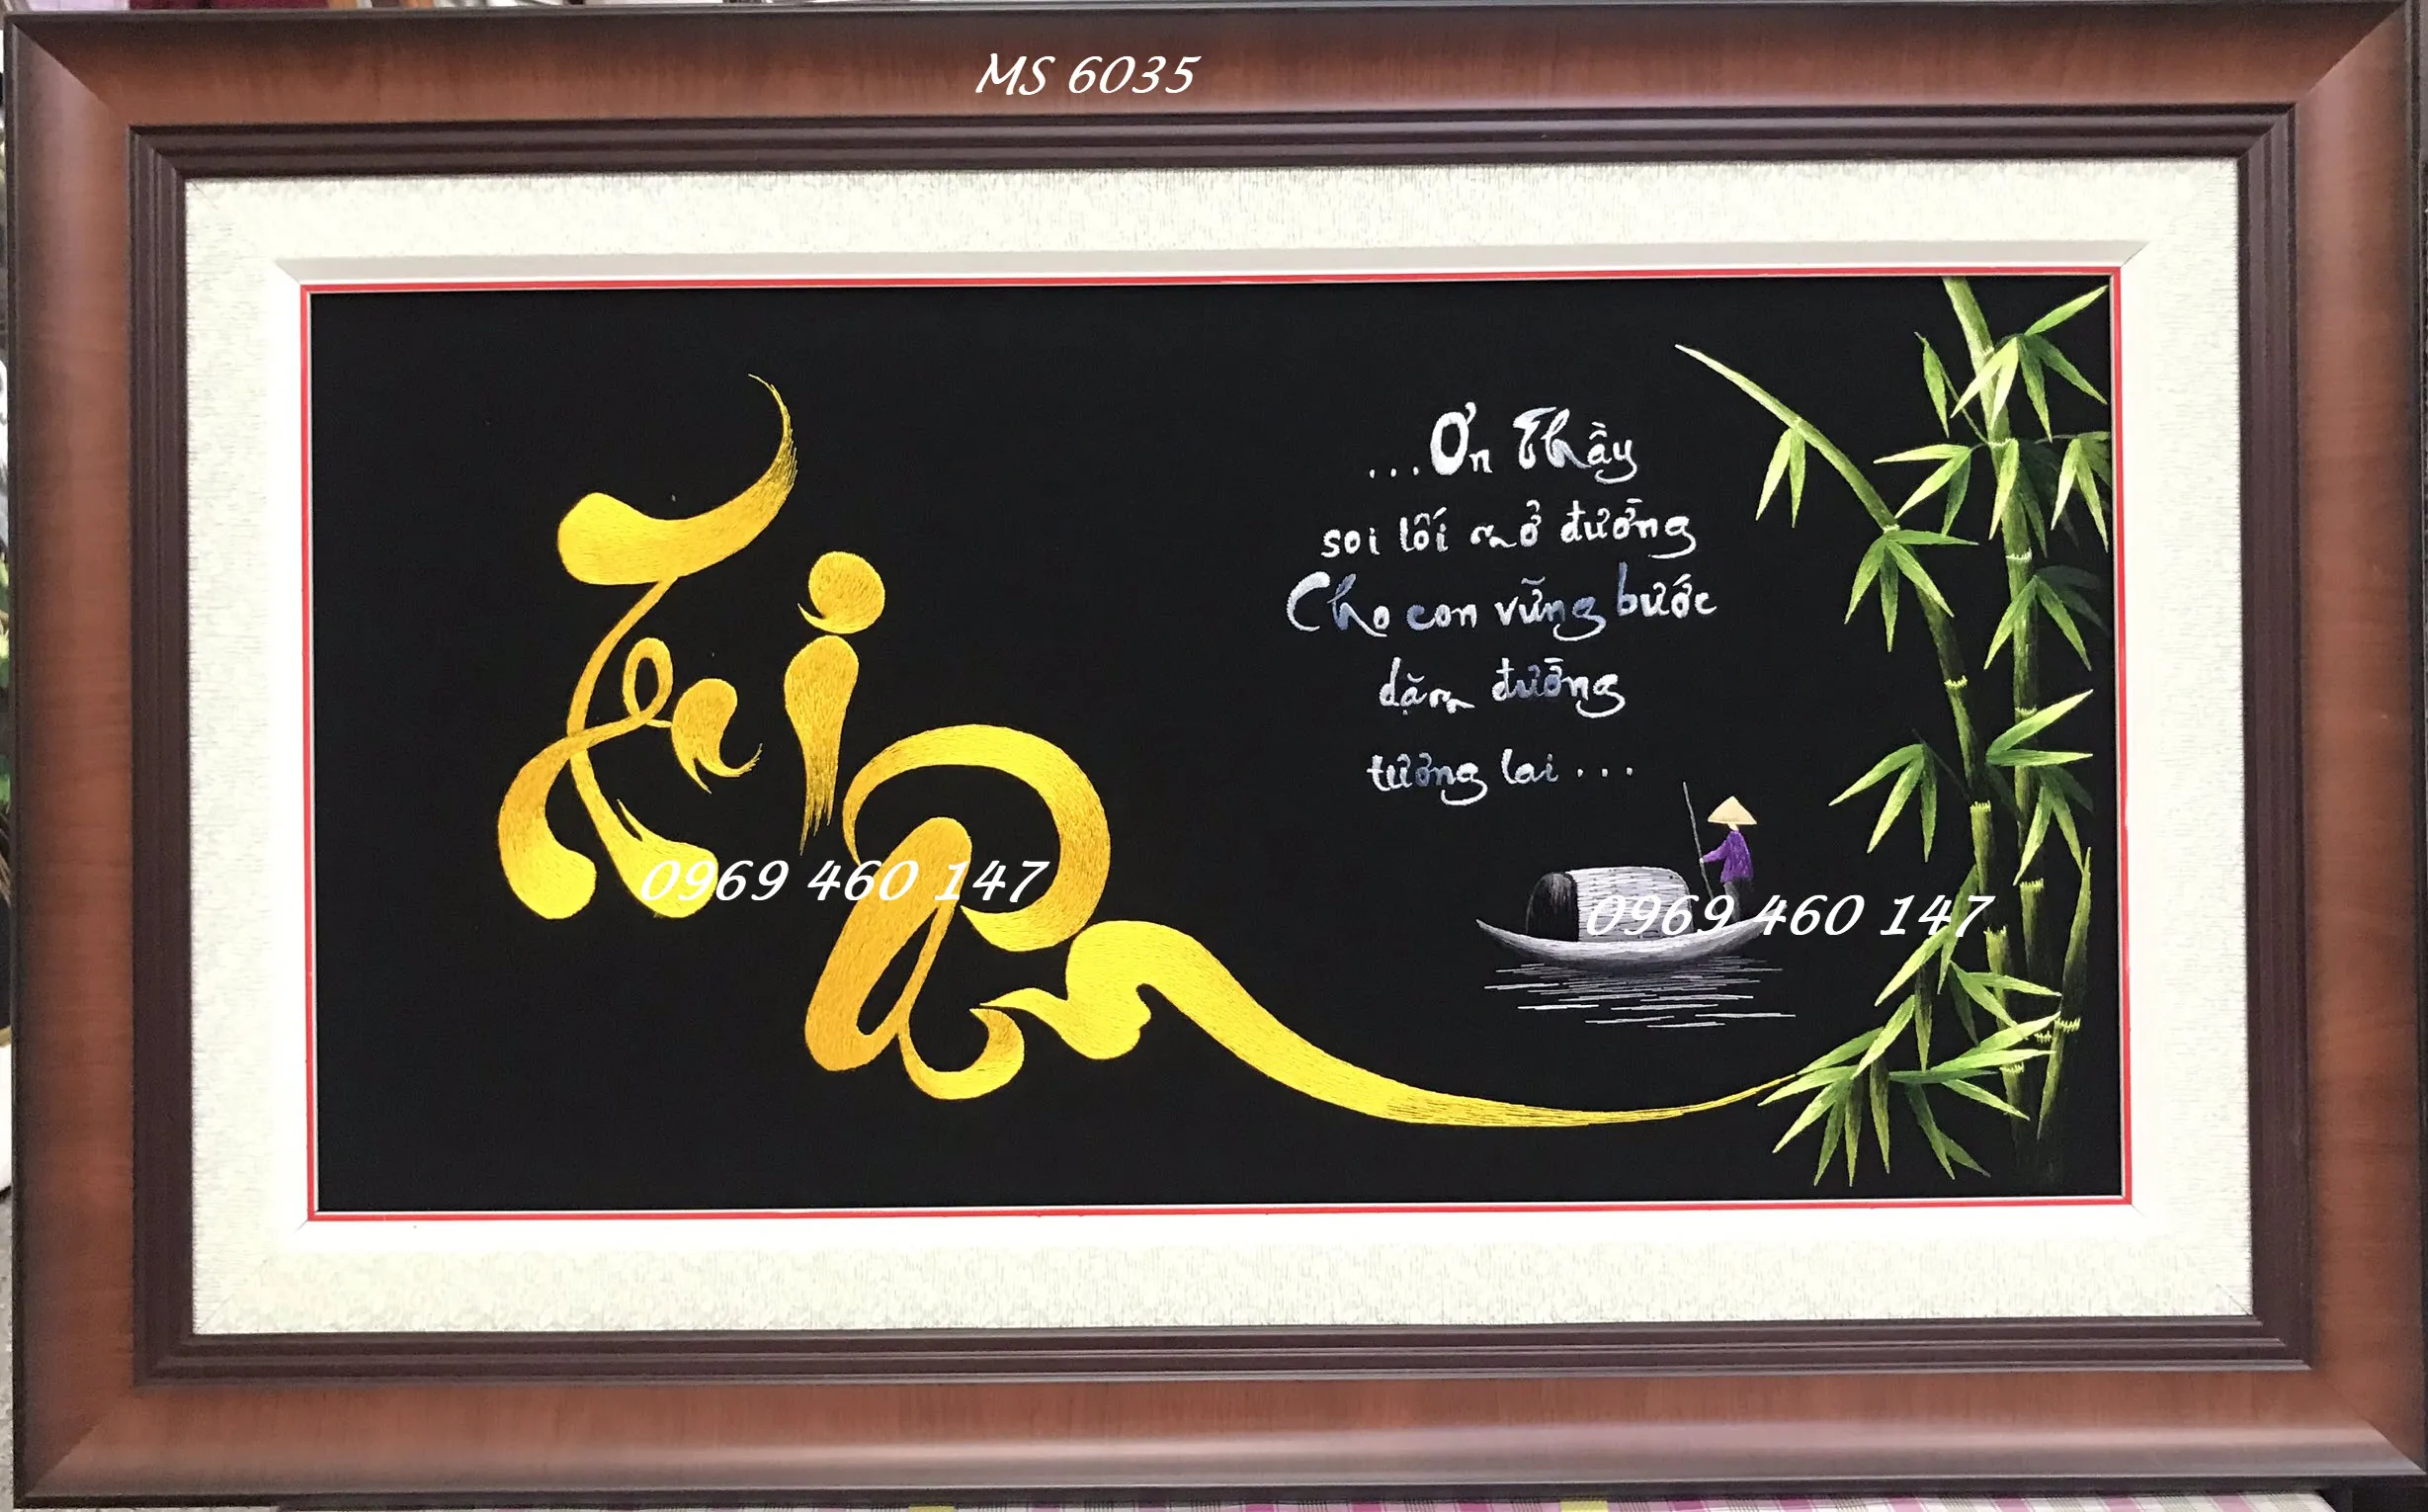 MS 6035
Tri
Ân
...Ơn Thầy
soi lối mở đường
Cho con vững bước
dặm đường
tương lai...
0969 460 147
0969 460 147